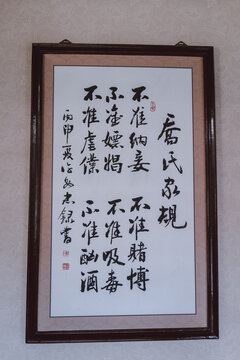 喬氏家規
不准納妾 不准賭博
不准嫖娼 不准吸毒
不准虐僕 不准酗酒
丙申夏 錄書